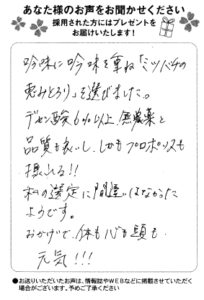 あなた様のお声をお聞かせください
採用された方にはプレゼントを
お届けいたします！
吟味に吟味を重ね「ミツバチの
恵みとろり」を選びました。
デセン酸6%以上 無農薬と
品質も良いし、しかもプロポリスも
摂れる!!
私の選定に間違いはなかった
ようです。
おかげで、体も心も頭も
元気!!!
●お送りいただいたお声は、情報誌やWEBなどに掲載させていただく
場合がございます。予めご了承ください